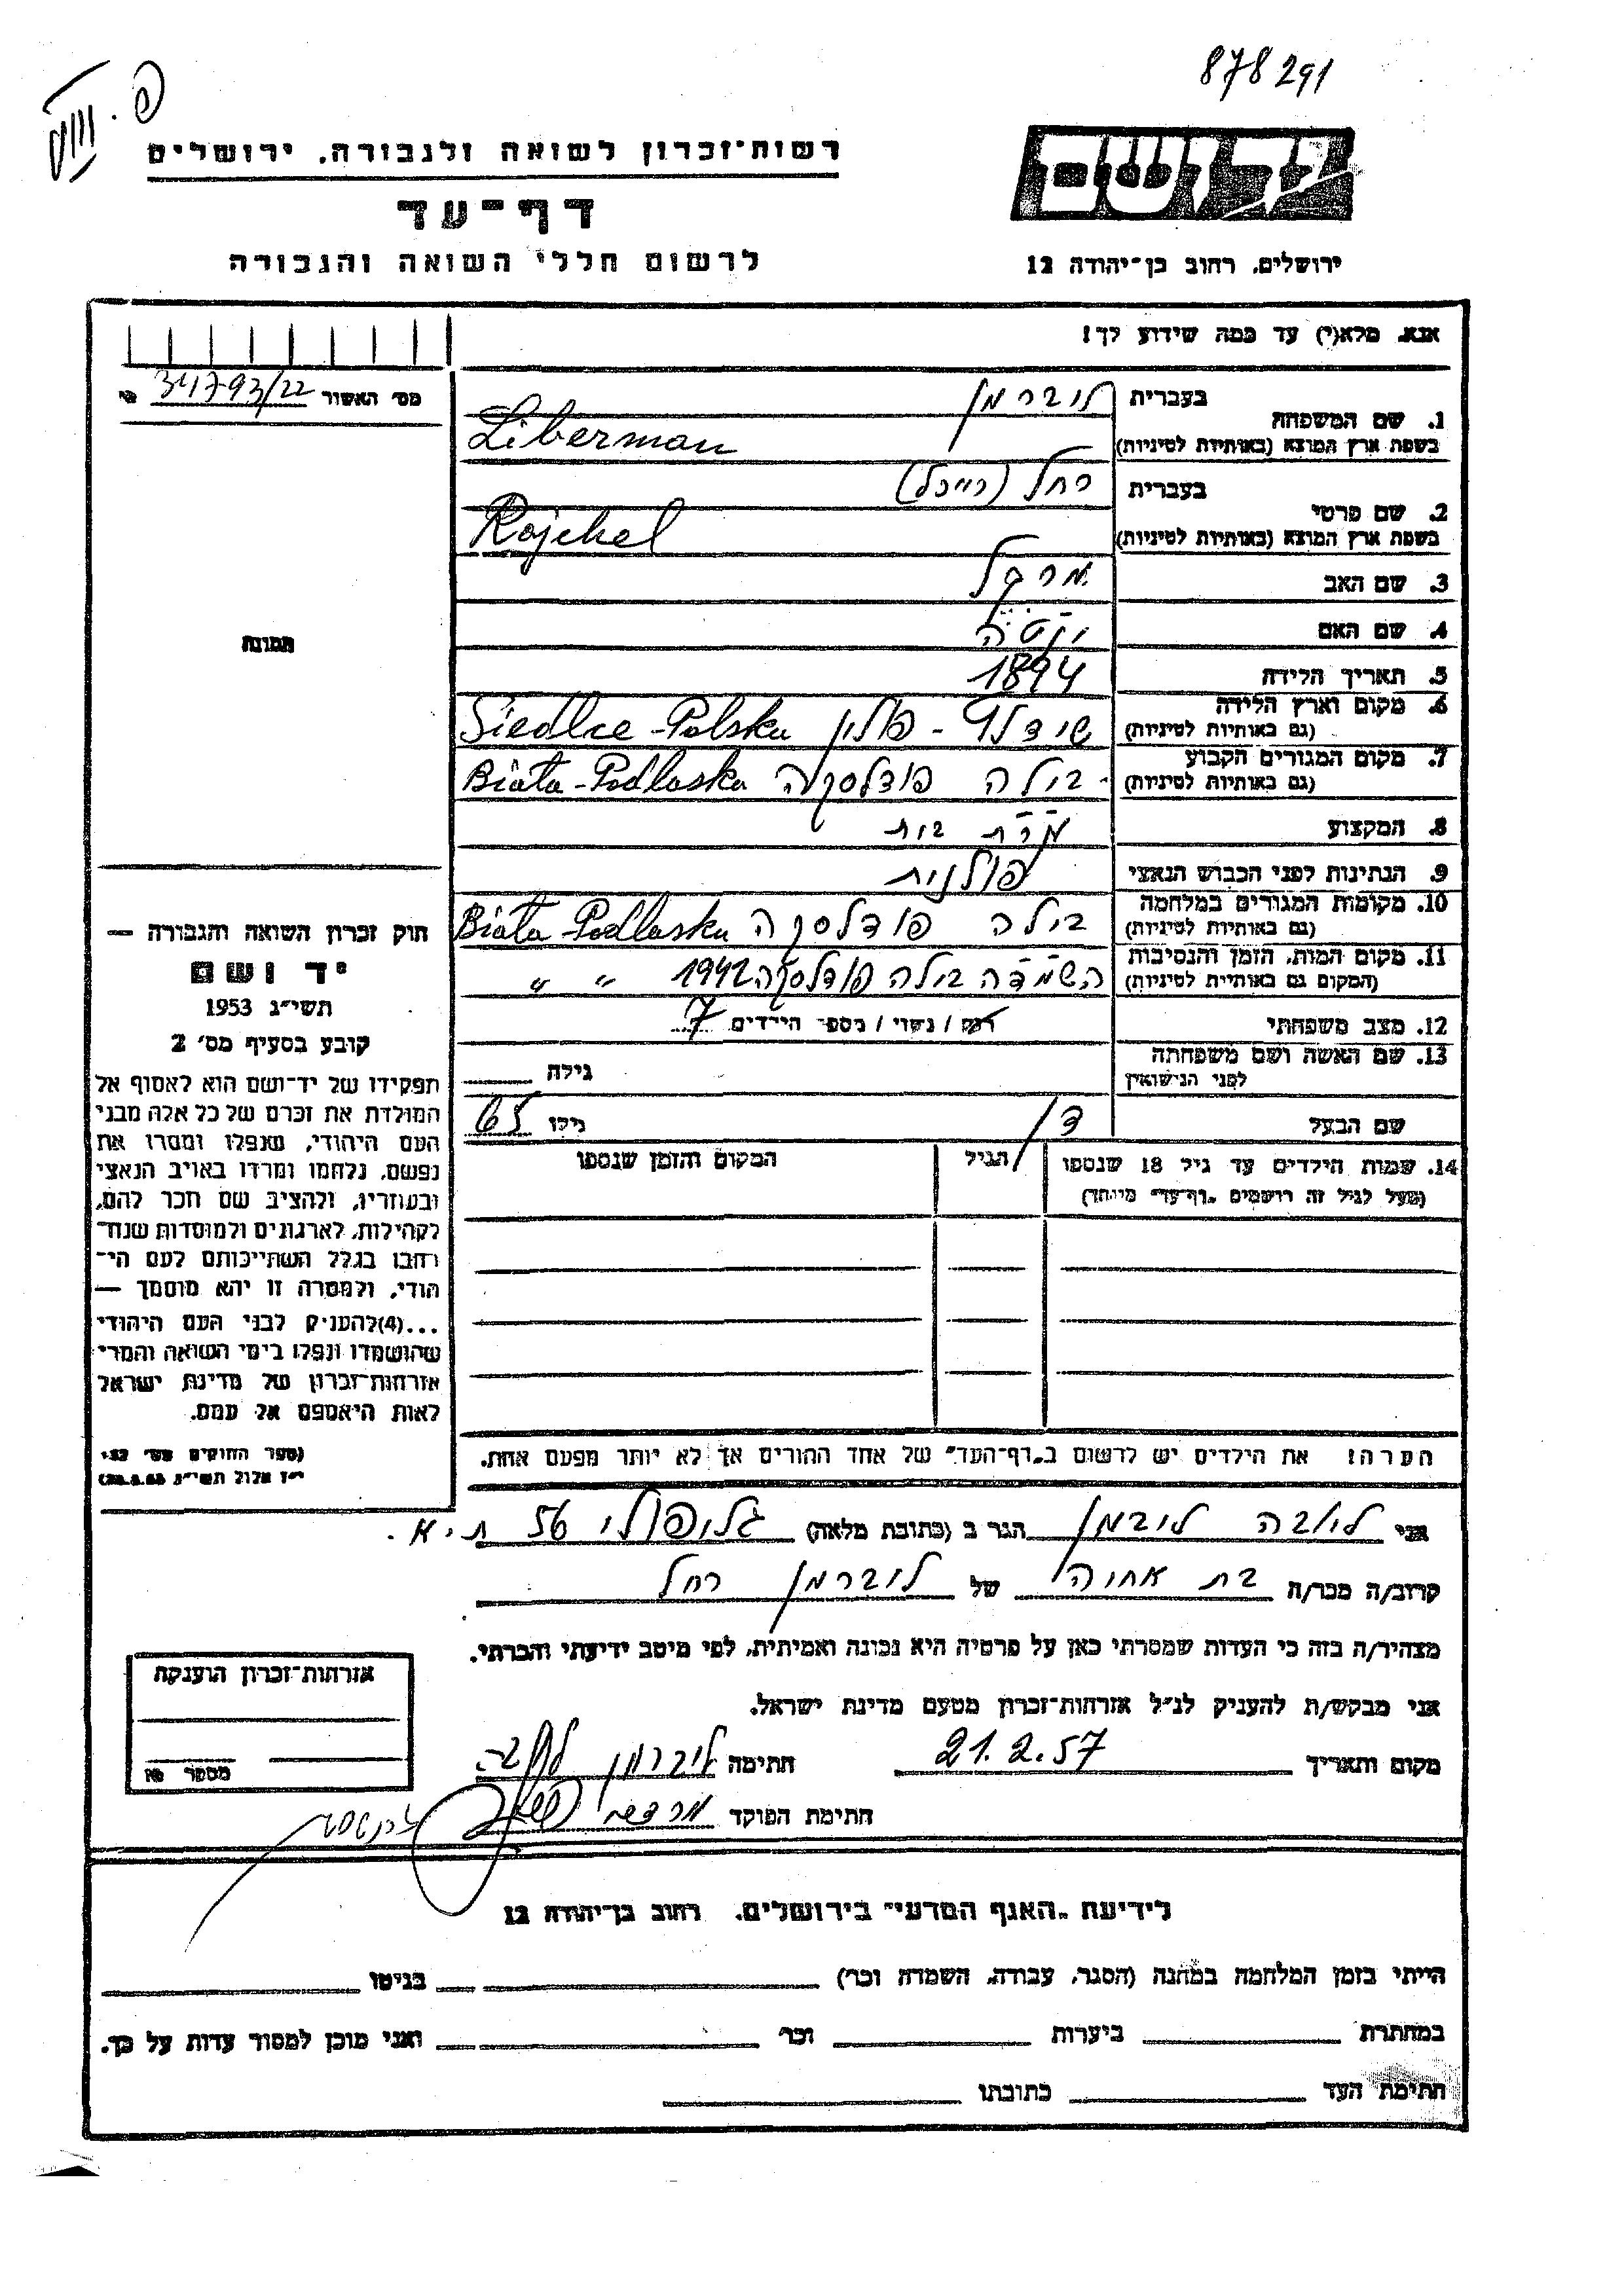 878291
רשות־זכרון לשואה ולגבורה, ירושלים
דף־עד
לרשום חללי השואה והגבורה
יד ושם
ירושלים, רחוב בן־יהודה 12
אנא, מלא(י) עד כמה שידוע לך!
מס׳ האשור
1. שם המשפחה
בעברית ליברמן
בשפת ארץ המוצא (באותיות לטיניות) Liberman
2. שם פרטי
בעברית רחל (רייכל)
בשפת ארץ המוצא (באותיות לטיניות) Rajchel
3. שם האב
4. שם האם
5. תאריך הלידה 1894
6. מקום וארץ הלידה
(גם באותיות לטיניות) שידלץ - פולין Siedlce - Polska
7. מקום המגורים הקבוע
(גם באותיות לטיניות) בילה פודלסקה Biała-Podlaska
8. המקצוע עקרת בית
9. הנתינות לפני הכבוש הנאצי פולנית
10. מקומות המגורים במלחמה
(גם באותיות לטיניות) בילה פודלסקה Biała Podlaska
11. מקום המות, הזמן והנסיבות
(המקום גם באותיות לטיניות) השמדה בילה פודלסקה 1942 " "
12. מצב משפחתי רווק / נשוי / מספר הילדים 7
13. שם האשה ושם משפחתה
לפני הנישואין גילה
שם הבעל גילו 65
14. שמות הילדים עד גיל 18 שנספו
(מעל לגיל זה רושמים „דף־עד" מיוחד)
הגיל
המקום והזמן שנספו
הערה: את הילדים יש לרשום ב„דף־העד" של אחד ההורים אך לא יותר מפעם אחת.
תמונה
חוק זכרון השואה והגבורה —
יד ושם
תשי״ג 1953
קובע בסעיף מס׳ 2
תפקידו של יד־ושם הוא לאסוף אל
המולדת את זכרם של כל אלה מבני
העם היהודי, שנפלו ומסרו את
נפשם, נלחמו ומרדו באויב הנאצי
ובעוזריו, ולהציב שם וזכר להם,
לקהילות, לארגונים ולמוסדות שנח־
רבו בגלל השתייכותם לעם הי־
הודי, ולמטרה זו יהא מוסמך —
...(4)להעניק לבני העם היהודי
שהושמדו ונפלו בימי השואה והמרי
אזרחות־זכרון של מדינת ישראל
לאות היאספם אל עמם.
(ספר החוקים מס׳ 132
י״ז אלול תשי״ג 28.8.53)
אני ליובה ליברמן הגר ב (כתובת מלאה) גליפולי 56 ת.א.
קרוב/ה מכר/ה בת אחיה של ליברמן רחל
מצהיר/ה בזה כי העדות שמסרתי כאן על פרטיה היא נכונה ואמיתית, לפי מיטב ידיעתי והכרתי.
אני מבקש/ת להעניק לנ״ל אזרחות־זכרון מטעם מדינת ישראל.
מקום ותאריך 21.2.57 חתימה ליברמן ליובה
חתימת הפוקד
אזרחות־זכרון הוענקה
מספר
לידיעת „האגף המדעי" בירושלים, רחוב בן־יהודה 12
הייתי בזמן המלחמה במחנה (הסגר, עבודה, השמדה וכו׳) בגיטו
במחתרת ביערות וכו׳ ואני מוכן למסור עדות על כך.
חתימת העד כתובתו